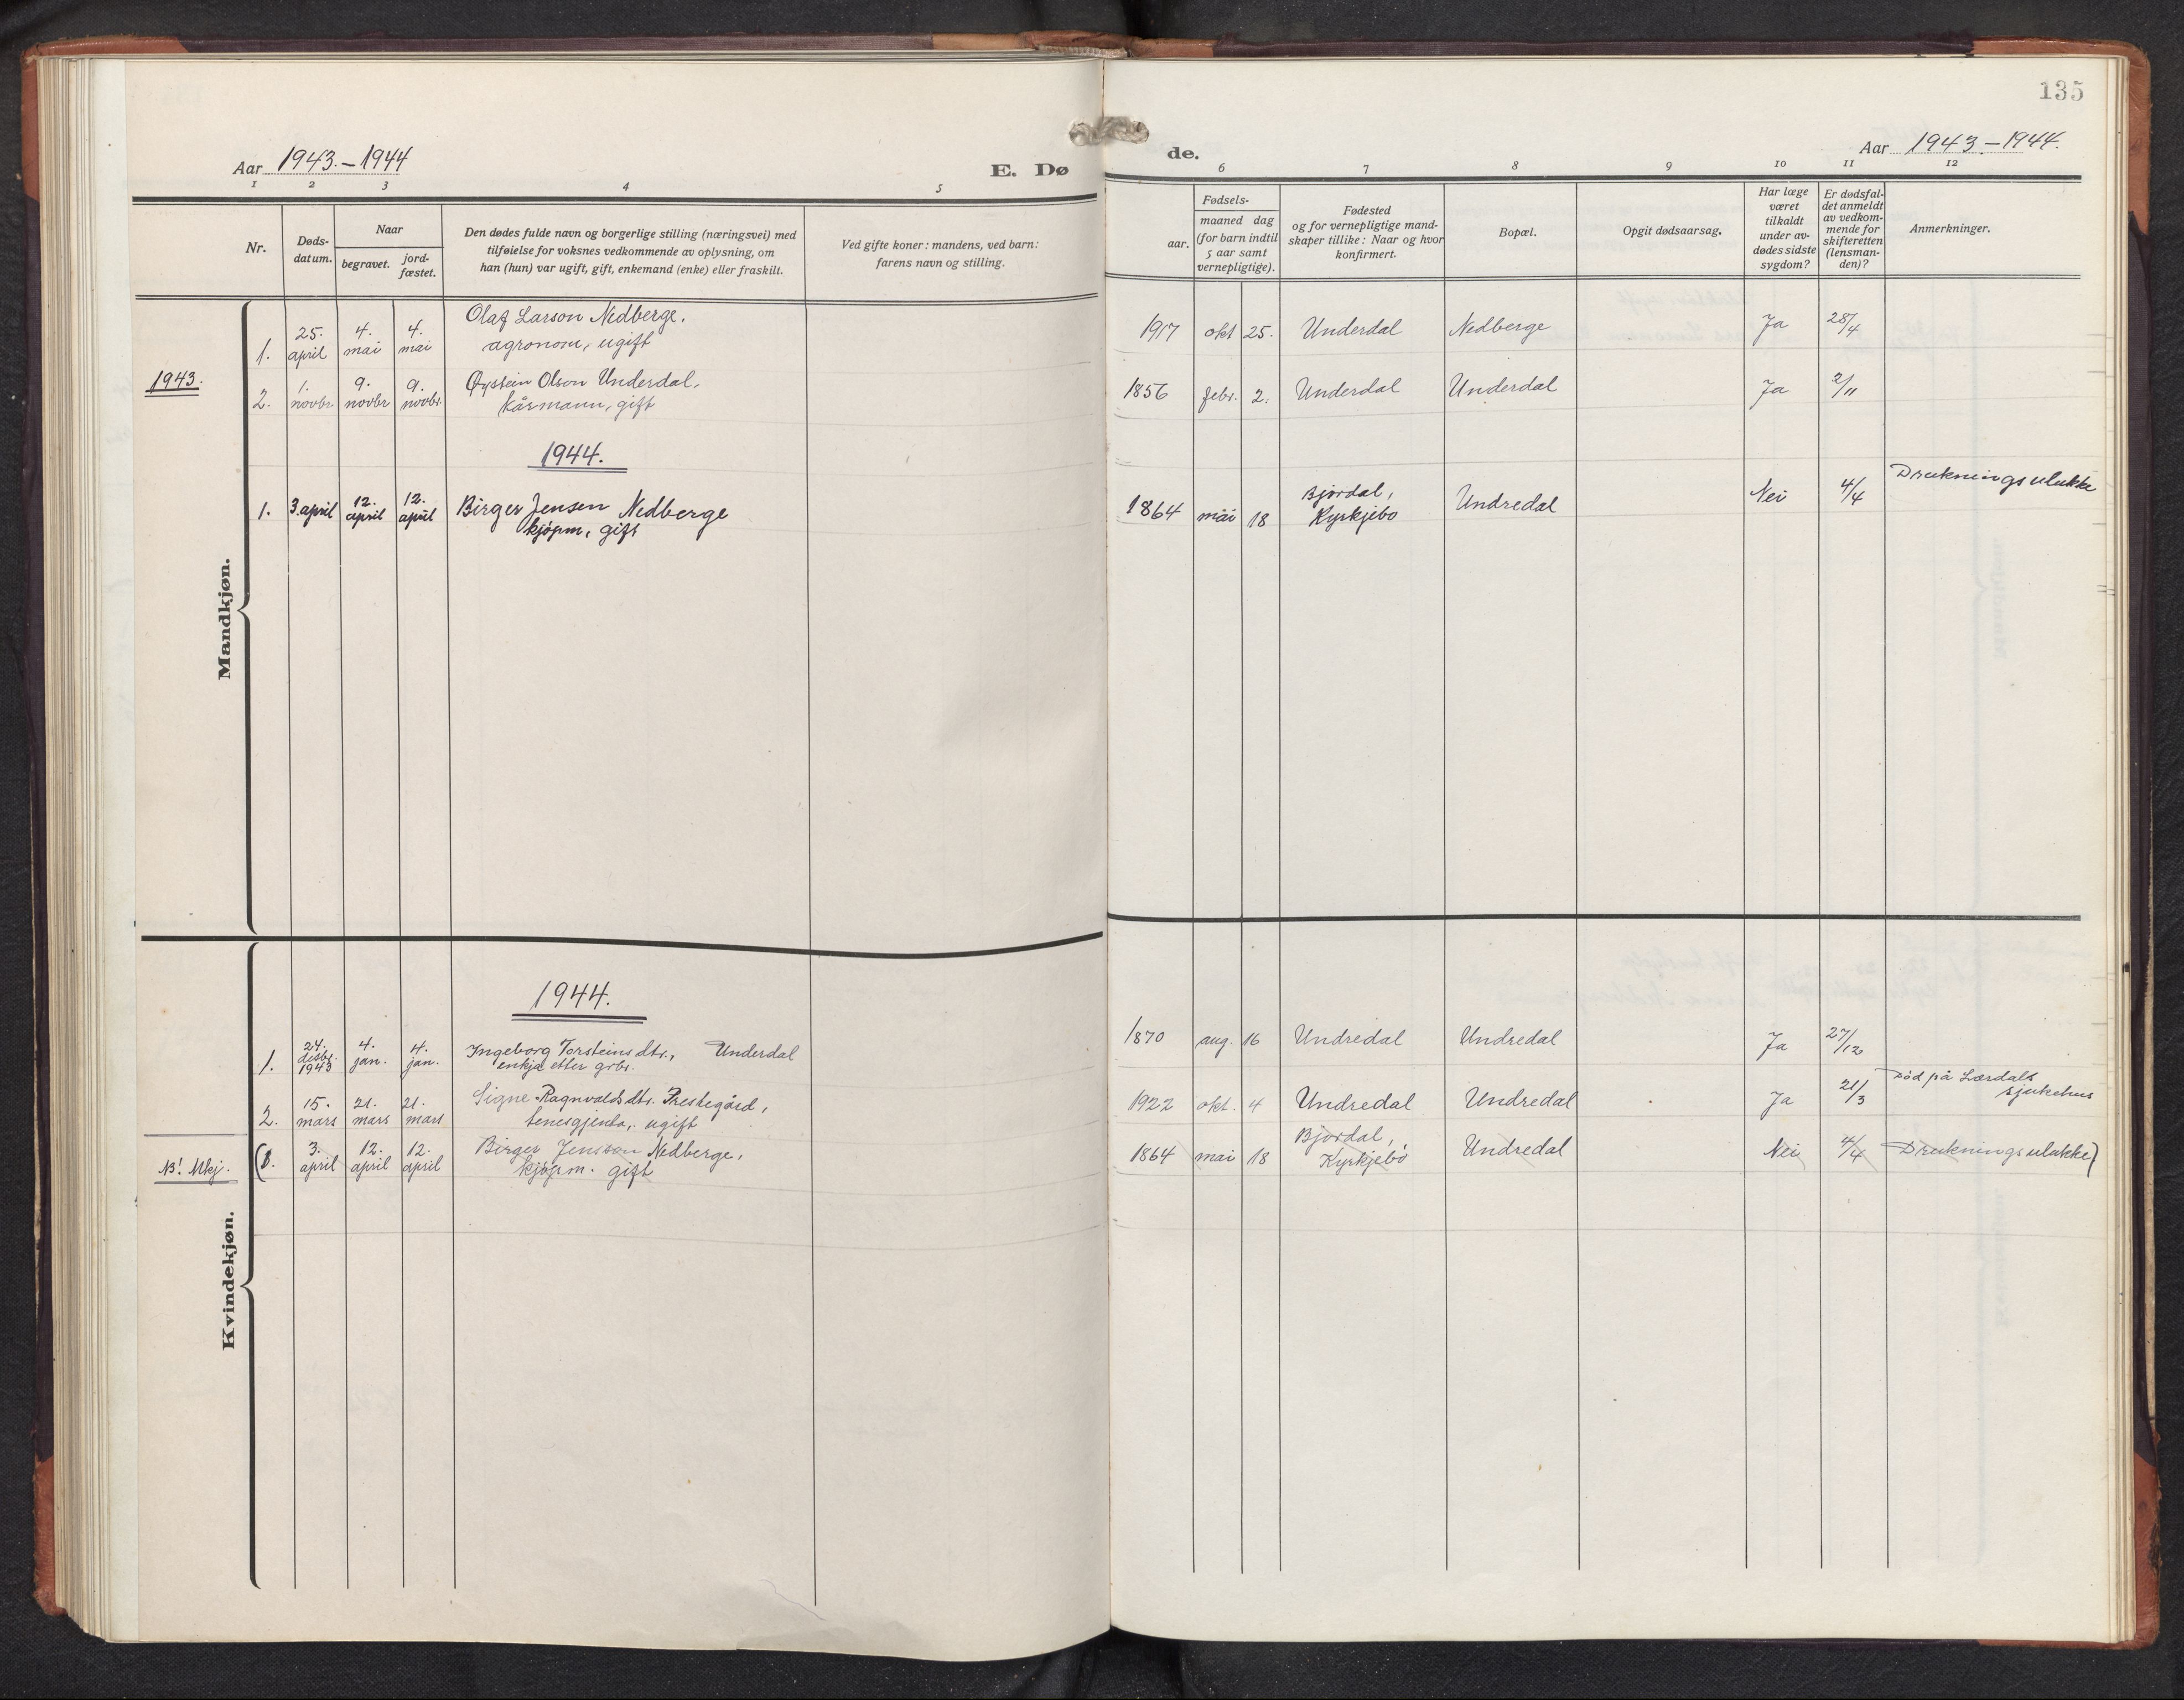 135
Aar 1943.-1944
E. Dø
de.
Aar 1943.-1944.
1 2 3 4 5
6 7 8 9 10 11 12
Nr.
Døds-
datum.
Naar
begravet.
jord-
fæstet.
Den dødes fulde navn og borgerlige stilling (næringsvei) med
tilføielse for voksnes vedkommende av oplysning, om
han (hun) var ugift, gift, enkemand (enke) eller fraskilt.
Ved gifte koner: mandens, ved barn:
farens navn og stilling.
Fødsels-
aar.
maaned dag
(for barn indtil
5 aar samt
vernepligtige).
Fødested
og for vernepligtige mand-
skaper tillike: Naar og hvor
konfirmert.
Bopæl.
Opgit dødsaarsag.
Har læge
været
tilkaldt
under av-
dødes sidste
sygdom?
Er dødsfal-
det anmeldt
av vedkom-
mende for
skifteretten
(lensman-
den)?
Anmerkninger.
Mandkjøn.
1943.
1. 25. april 4. mai 4. mai Olaf Larson Nedberge, 1917 okt 25. Underdal Nedberge Ja 28/4
agronom, ugift
2. 1. novbr 9. novbr 9. novbr. Øystein Olson Underdal, 1856 febr. 2. Underdal Underdal Ja 2/11
kårmann, gift
1944.
1. 3. april 12. april 12. april Birger Jensen Nedberge 1864 mai 18 Bjordal, Undredal Nei 4/4 Drukningsulukke
kjøpm, gift Kyrkjebø
Kvindekjøn.
1944.
1. 24. desbr. 1943 4. jan. 4. jan. Ingeborg Torsteinsdtr., Underdal 1870 aug. 16 Undredal Undredal Ja 27/12
enkja etter grbr.
2. 15. mars 21. mars 21. mars Signe Ragnvaldsdtr. Prestegård, 1922 okt. 4 Undredal Undredal Ja 21/3 Død på Lærdals
tenesgjenta, ugift sjukehus
NB! Mkj. (1. 3. april 12. april 12. april Birger Jensson Nedberge, 1864 mai 18 Bjordal, Undredal Nei 4/4 Drukningsulukke)
kjøpm. gift Kyrkjebø